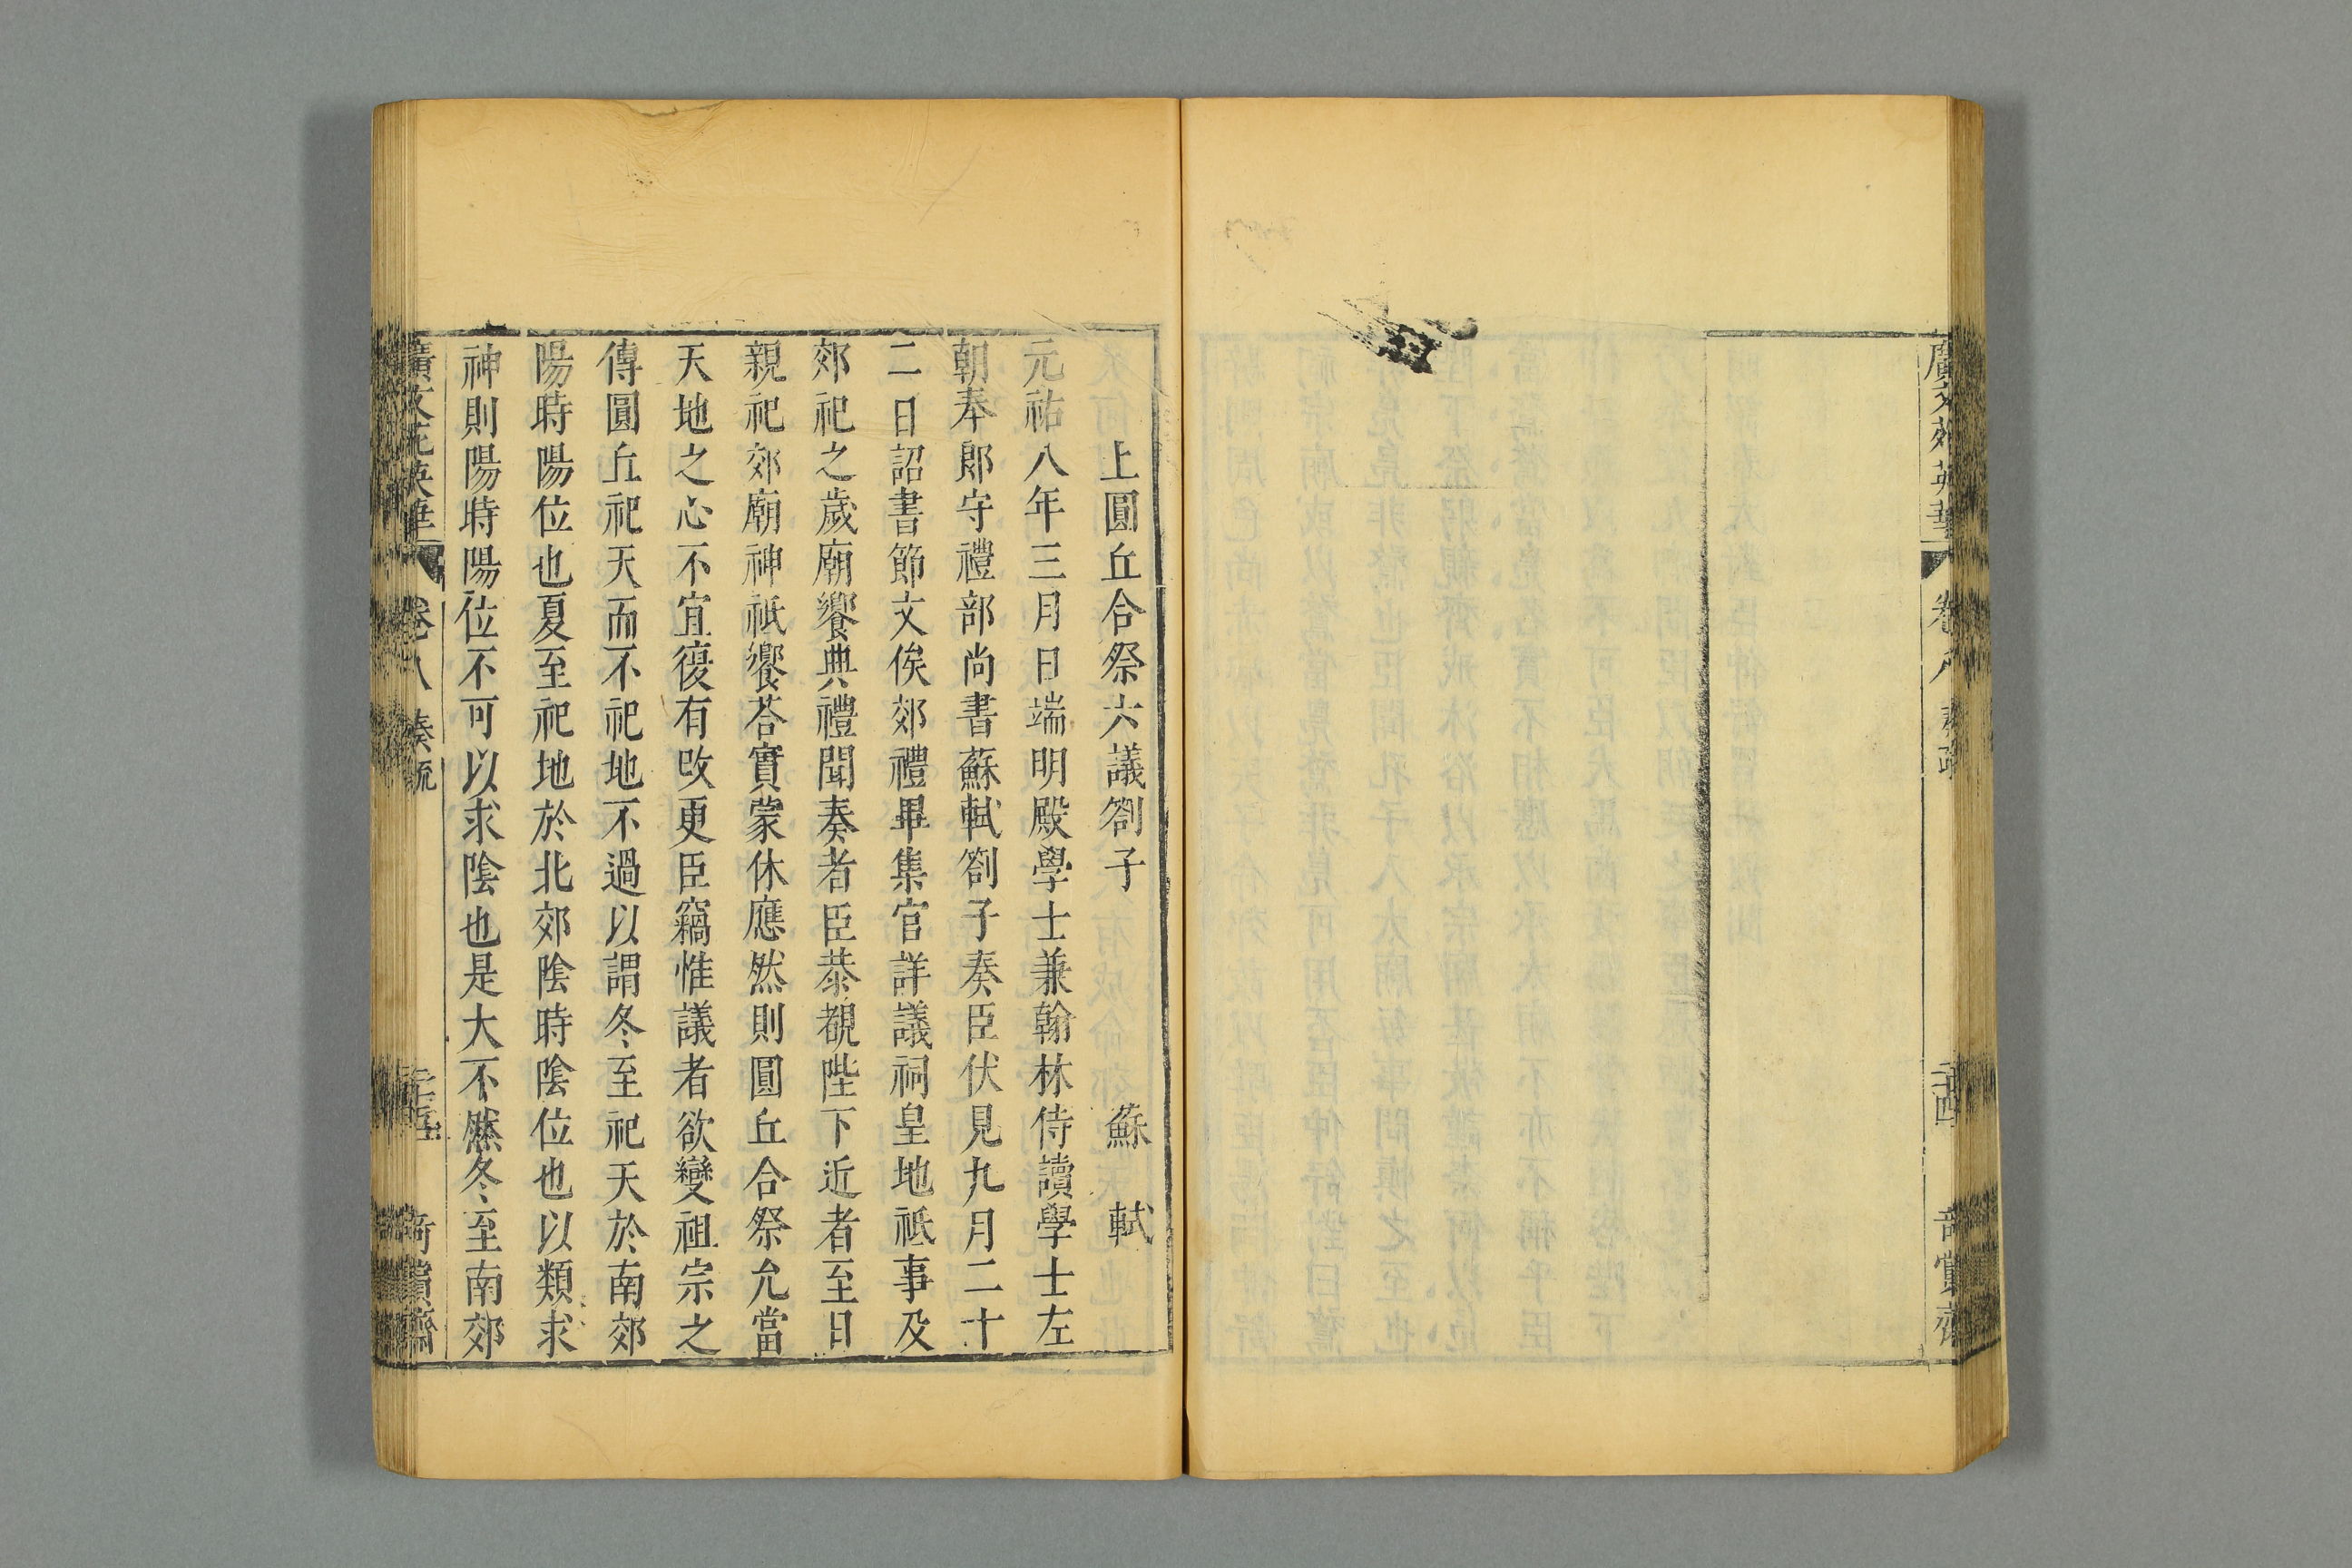 廣文苑英華 卷八 奏疏 二十四 奇賞齋
上圓丘合祭六議劄子 蘇軾
元祐八年三月日端明殿學士兼翰林侍讀學士左
朝奉郎守禮部尚書蘇軾劄子奏臣伏見九月二十
二日詔書節文俟郊禮畢集官詳議祠皇地祗事及
郊祀之歲廟饗典禮聞奏者臣恭覩陛下近者至日
親祀郊廟神祇饗荅實蒙休應然則圓丘合祭允當
天地之心不宜復有改更臣竊惟議者欲變祖宗之
傳圓丘祀天而不祀地不過以謂冬至祀天於南郊
陽時陽位也夏至祀地於北郊陰時陰位也以類求
神則陽時陽位不可以求陰也是大不然冬至南郊
廣文苑英華 卷八 奏疏 二十五 奇賞齋